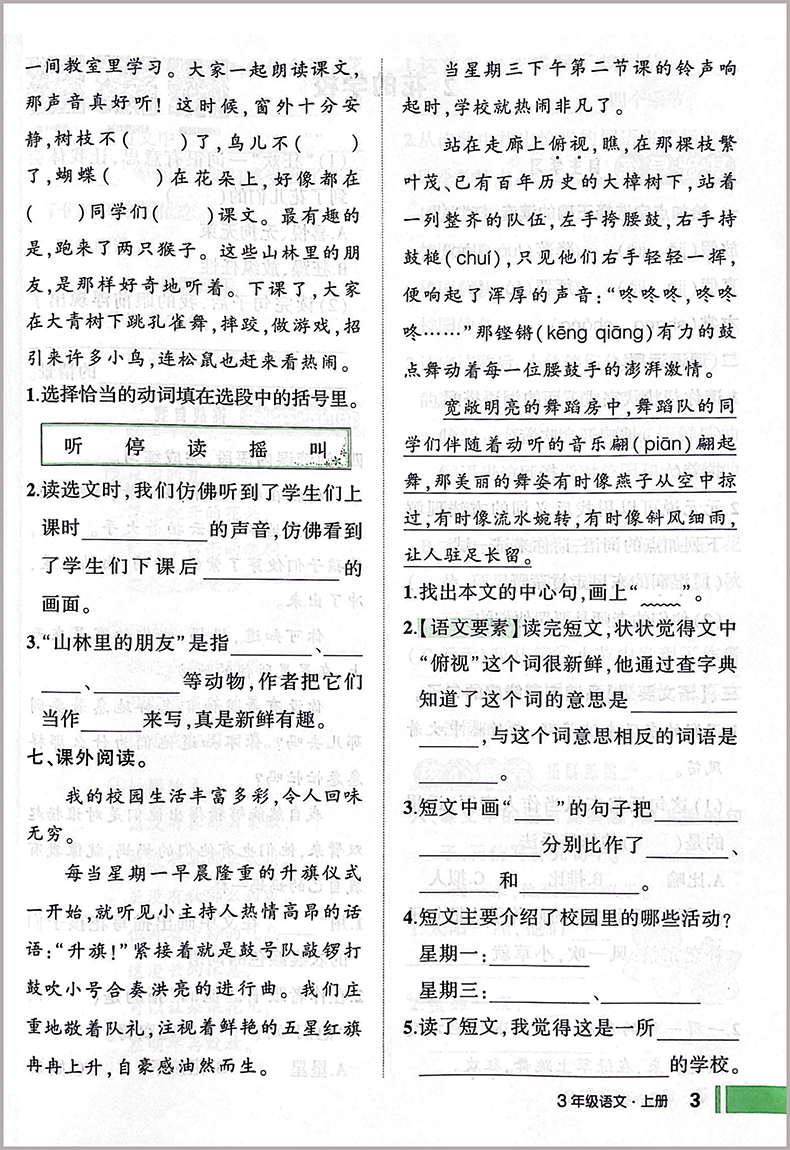 一间教室里学习。大家一起朗读课文，
那声音真好听！这时候，窗外十分安
静，树枝不（　　）了，鸟儿不（　　）
了，蝴蝶（　　）在花朵上，好像都在
（　　）同学们（　　）课文。最有趣的
是，跑来了两只猴子。这些山林里的朋
友，是那样好奇地听着。下课了，大家
在大青树下跳孔雀舞，摔跤，做游戏，招
引来许多小鸟，连松鼠也赶来看热闹。
1.选择恰当的动词填在选段中的括号里。
听　停　读　摇　叫
2.读选文时，我们仿佛听到了学生们上
课时__________的声音，仿佛看到
了学生们下课后__________的
画面。
3.“山林里的朋友”是指________、
________、________等动物，作者把它们
当作______来写，真是新鲜有趣。
七、课外阅读。
我的校园生活丰富多彩，令人回味
无穷。
每当星期一早晨隆重的升旗仪式
一开始，就听见小主持人热情高昂的话
语：“升旗！”紧接着就是鼓号队敲锣打
鼓吹小号合奏洪亮的进行曲。我们庄
重地敬着队礼，注视着鲜艳的五星红旗
冉冉上升，自豪感油然而生。
当星期三下午第二节课的铃声响
起时，学校就热闹非凡了。
站在走廊上俯视，瞧，在那棵枝繁
叶茂、已有百年历史的大樟树下，站着
一列整齐的队伍，左手挎腰鼓，右手持
鼓槌(chuí)，只见他们右手轻轻一挥，
便响起了浑厚的声音：“咚咚咚，咚咚
咚……”那铿锵(kēng qiāng)有力的鼓
点舞动着每一位腰鼓手的澎湃激情。
宽敞明亮的舞蹈房中，舞蹈队的同
学们伴随着动听的音乐翩(piān)翩起
舞，那美丽的舞姿有时像燕子从空中掠
过，有时像流水婉转，有时像斜风细雨，
让人驻足长留。
1.找出本文的中心句，画上“﹏﹏”。
2.【语文要素】读完短文，状状觉得文中
“俯视”这个词很新鲜，他通过查字典
知道了这个词的意思是________
______，与这个词意思相反的词语是
________。
3.短文中画“____”的句子把________
__________分别比作了________、
________和________。
4.短文主要介绍了校园里的哪些活动？
星期一：__________
星期三：__________、__________
5.读了短文，我觉得这是一所________
__________________的学校。
3年级语文·上册　3